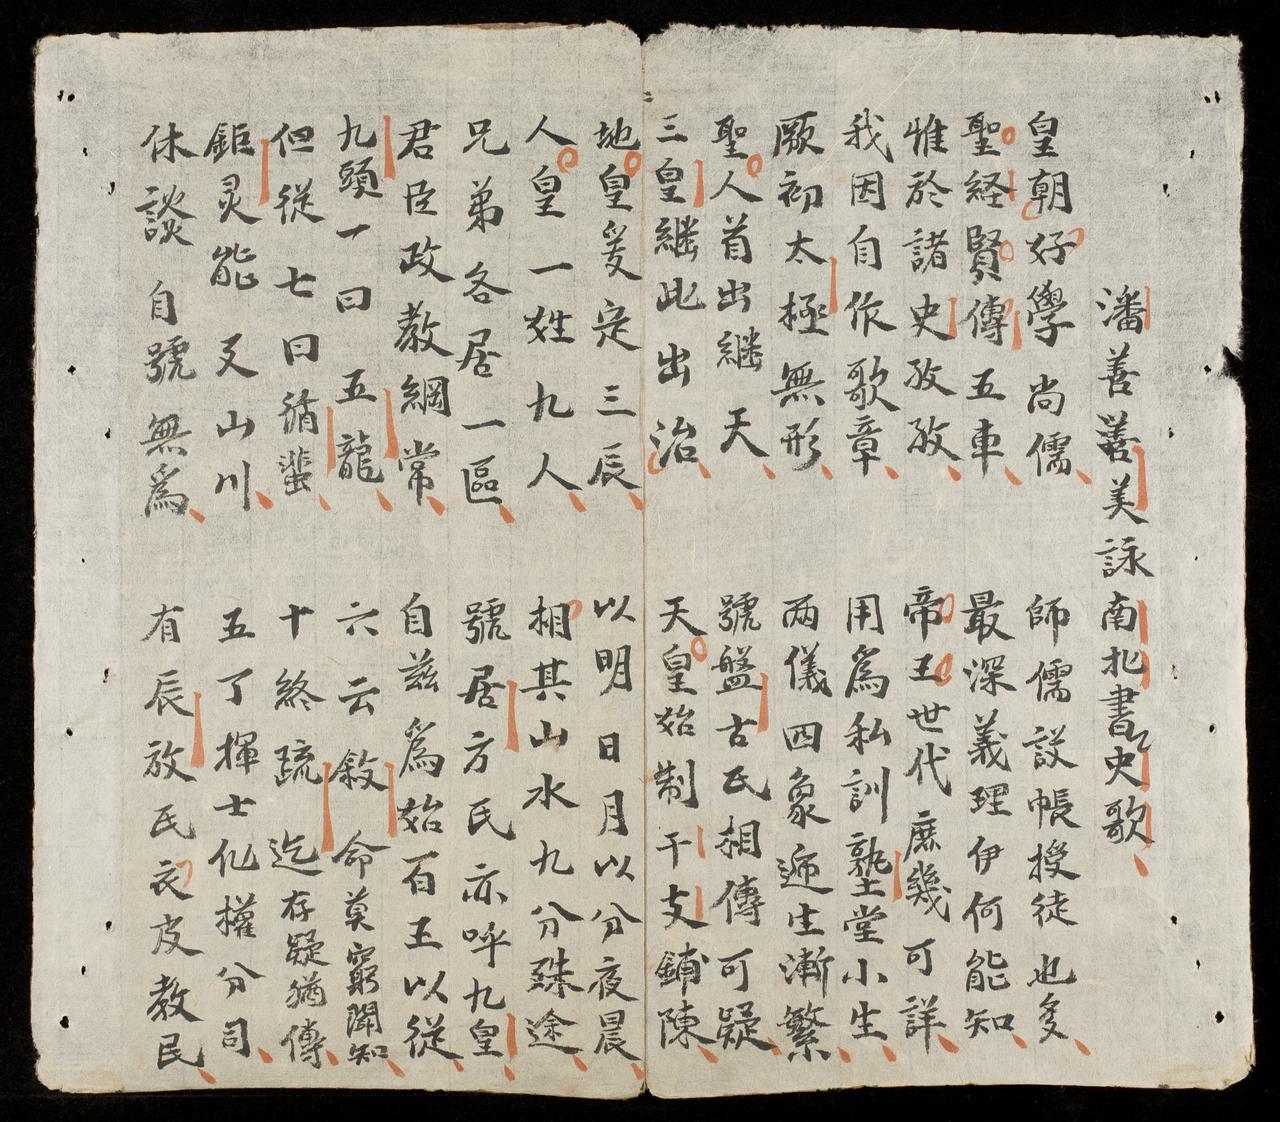 潘善善美詠南北書史歌
皇朝好學尚儒 師儒設帳授徒也多
聖経賢傳五車 最深義理伊何能知
惟於諸史孜孜 帝王世代庶幾可詳
我因自作歌章 用爲私訓塾堂小生
厥初太極無形 两儀四象遞生漸繁
聖人首出継天 號盤古氏相傳可疑
三皇継此出治 天皇始制干支鋪陳
地皇爰定三辰 以明日月以分夜晨
人皇一姓九人 相其山水九分殊途
兄弟各居一區 號居方氏亦呼九皇
君臣政教綱常 自兹爲始百王以従
九頭一曰五龍 六云敘命莫窮聞知
但従七曰循蜚 十終疏迄存疑猶傳
鉅灵能山川 五丁揮士權分司
休談自號無爲 有辰放氏衣皮教民